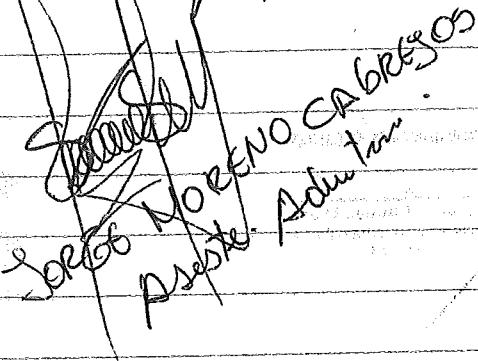 JORGE MORENO CABREJOS
Asiste. Admitn.